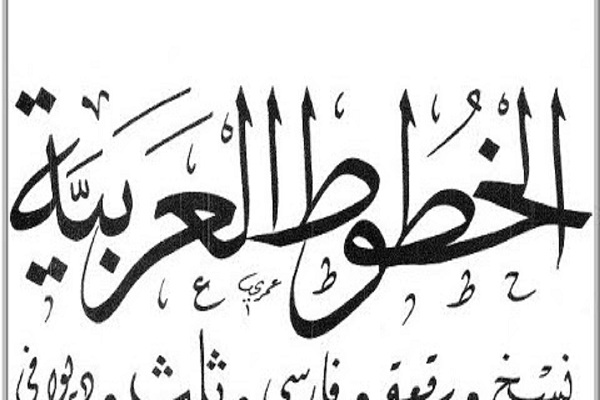 الخُطوط العربيّة
نسخ و رقعة و فارسي و ثلث و ديواني